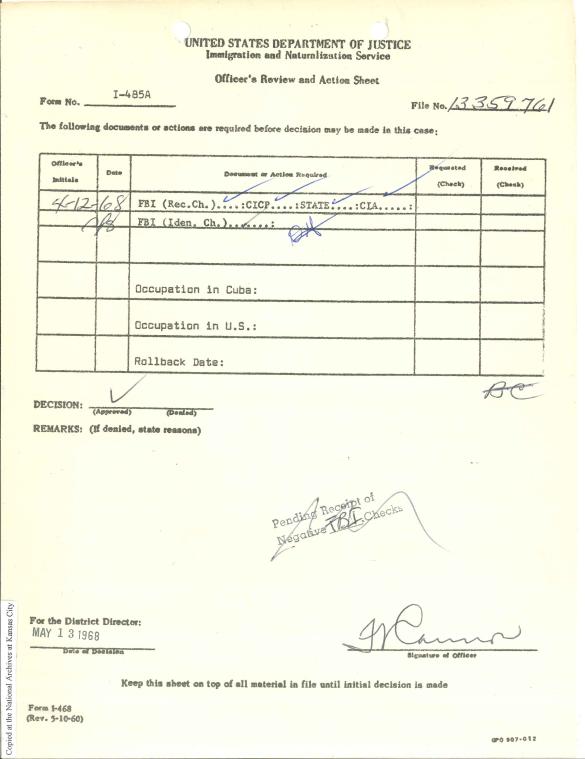 UNITED STATES DEPARTMENT OF JUSTICE
Immigration and Naturalization Service
Officer's Review and Action Sheet
Form No. I-485A
File No. 13359761
The following documents or actions are required before decision may be made in this case:
Officer's Initials Date Document or Action Required Requested (Check) Received (Check)
4-12-68 FBI (Rec.Ch.)....:CICP....:STATE....:CIA.....:
FBI (Iden. Ch.).......:
Occupation in Cuba:
Occupation in U.S.:
Rollback Date:
DECISION:
(Approved) (Denied)
REMARKS: (If denied, state reasons)
Pending Receipt of
Negative FBI Checks
For the District Director:
MAY 13 1968
Date of Decision
Signature of Officer
Keep this sheet on top of all material in file until initial decision is made
Form I-468
(Rev. 5-10-60)
GPO 907-012
Copied at the National Archives at Kansas City